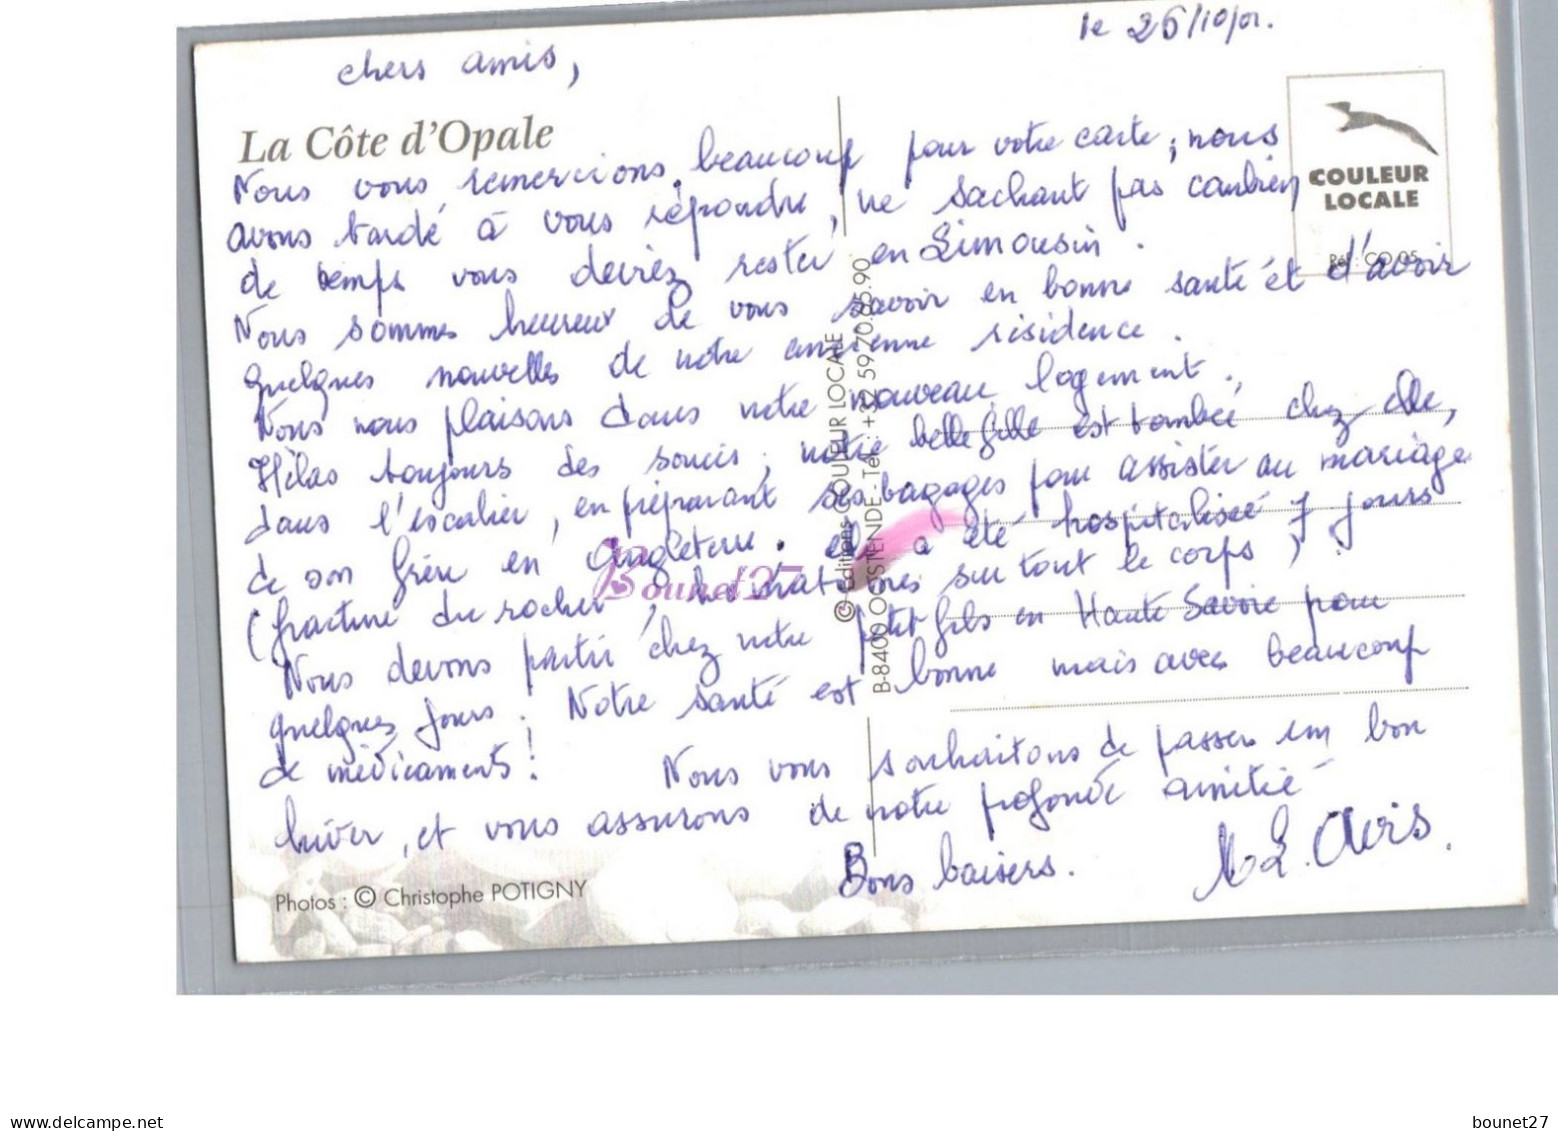 le 26/10/01.
chers amis,
La Côte d'Opale
COULEUR
LOCALE
Réf. : CO 05
Nous vous remercions beaucoup pour votre carte, nous
avons tardé à vous répondre, ne sachant pas combien
de temps vous deviez rester en Limousin.
Nous sommes heureux de vous savoir en bonne santé et d'avoir
quelques nouvelles de notre ancienne résidence.
Nous nous plaisons dans notre nouveau logement.
Hélas toujours des soucis, notre belle fille est tombée chez elle,
dans l'escalier, en préparant ses bagages pour assister au mariage
de son frère en Angleterre. elle a été hospitalisée 7 jours
(fracture du rocher, hématomes sur tout le corps)
Nous devons partir chez notre petit fils en Haute Savoie pour
quelques jours. Notre santé est bonne mais avec beaucoup
de médicaments! Nous vous souhaitons de passer un bon
hiver, et vous assurons de notre profonde amitié
Bons baisers.
© Editions COULEUR LOCALE
B-8400 OOSTENDE - Tél. : +32 59 70.85.90
Bounet27
Photos : © Christophe POTIGNY
www.delcampe.net
bounet27